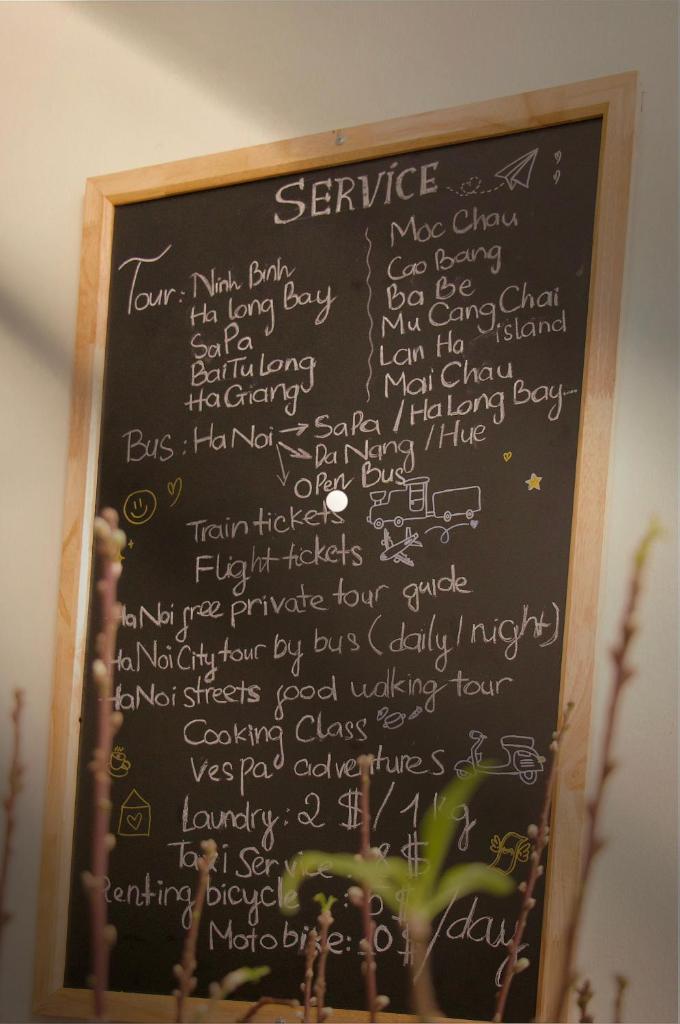 SERVICE
Tour: Ninh Binh
Ha Long Bay
SaPa
BaiTuLong
HaGiang
Moc Chau
Cao Bang
Ba Be
Mu Cang Chai
Lan Ha island
Mai Chau
Bus: HaNoi → SaPa / HaLong Bay...
Da Nang / Hue
Open Bus
Train tickets
Flight tickets
HaNoi free private tour guide
HaNoi City tour by bus (daily/night)
HaNoi streets food walking tour
Cooking Class
Vespa adventures
Laundry: 2 $/1kg
Taxi Service $
Renting bicycle : $
Motobike: $ /day